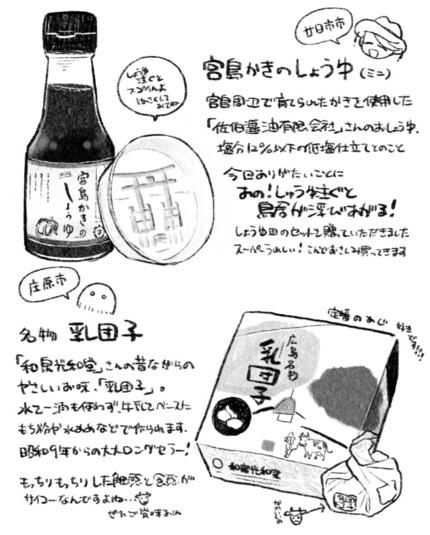 廿日市市
宮島かきのしょうゆ(ミニ)
宮島周辺で育てられたかきを使用した
「佐伯醤油有限会社」さんのおしょうゆ。
塩分12%以下の低塩仕立てとのこと
今回ありがたいことに
あの!しょうゆ注ぐと
鳥居が浮びあがる!
しょうゆ皿のセットを贈っていただきました
スーパーうれしい!こんどおさしみ買ってきます
しょうゆ
注ぐと
宮島かきの
しょうゆ
庄原市
名物 乳団子
「和泉光和堂」さんの昔ながらの
やさしいお味、「乳団子」。
水を一滴も使わず牛乳をベースに
もち粉や水あめなどで作られます。
昭和9年からの大大ロングセラー!
もっちりもっちりした触感と食感が
サイコーなんですよね…
ぜひご賞味あれ
定番のあじ
好きです!!!
広島名物
乳団子
和泉光和堂
乳団子